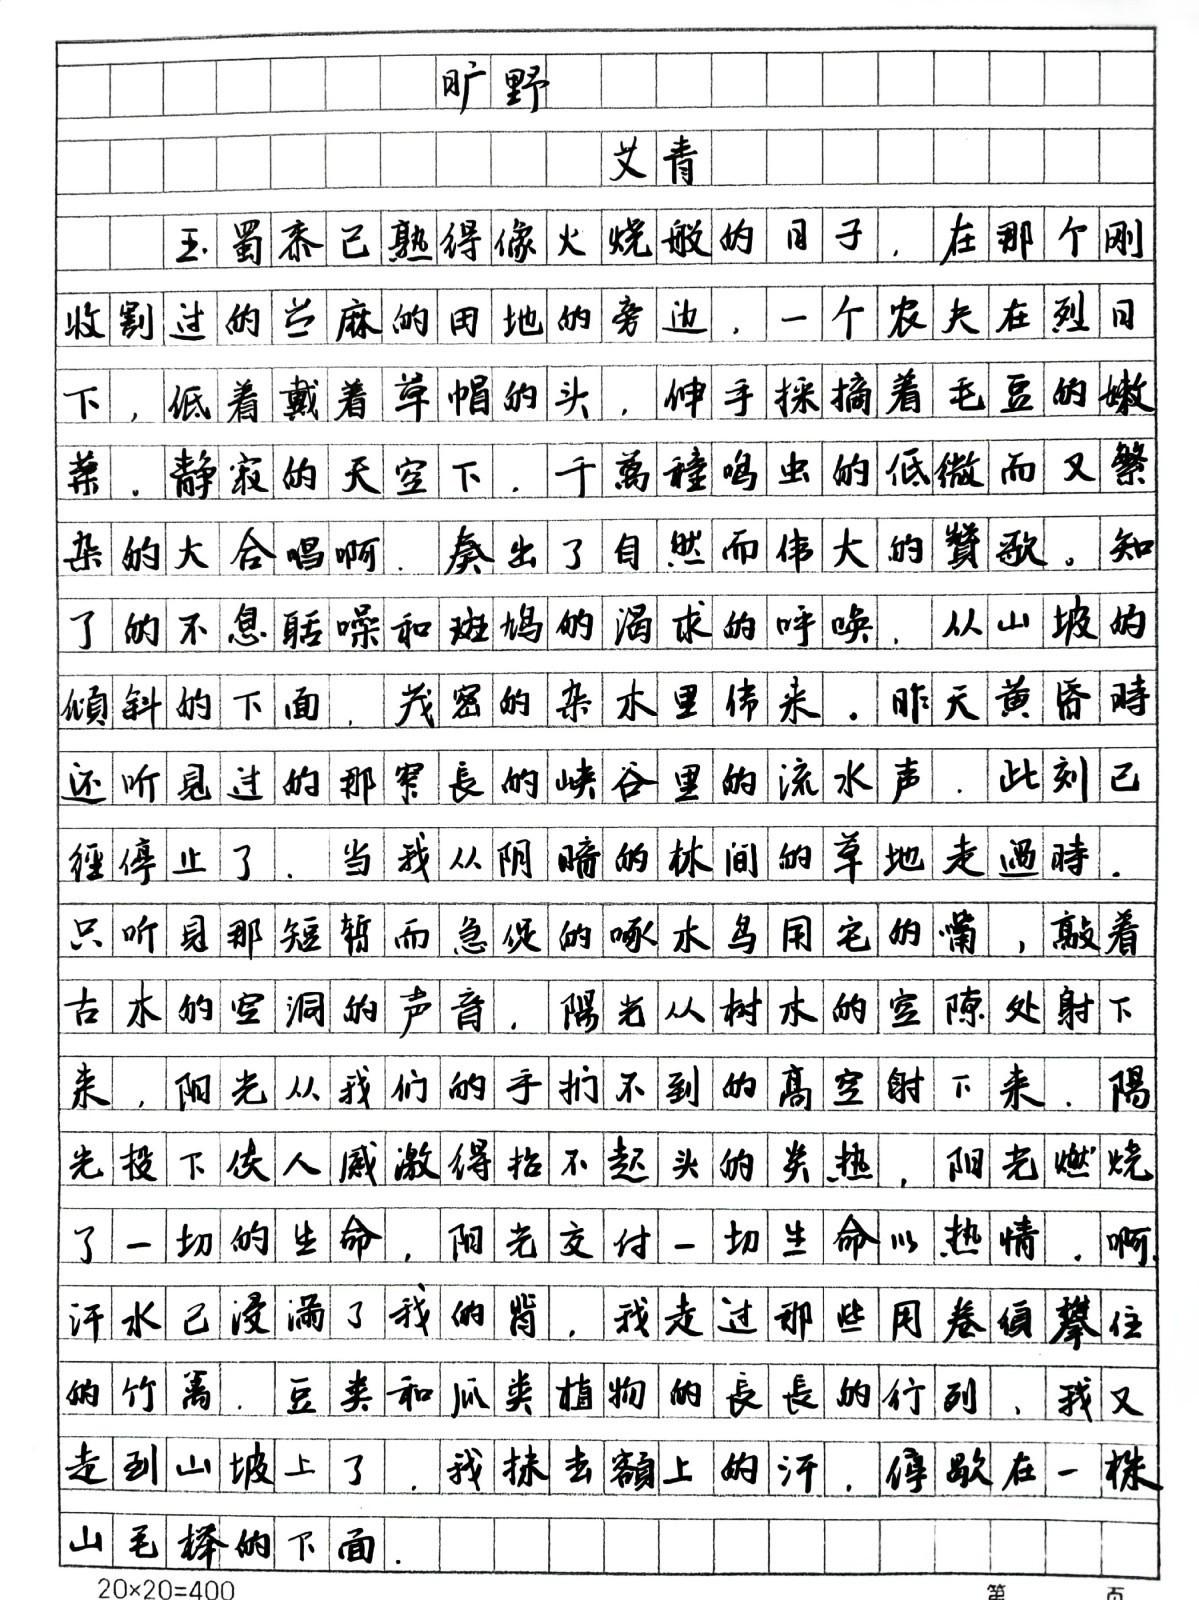 旷野
艾青
玉蜀黍已熟得像火烧般的日子，在那个刚
收割过的苎麻的田地的旁边，一个农夫在烈日
下，低着戴着草帽的头，伸手採摘着毛豆的嫩
葉。静寂的天空下，千萬種鸣虫的低微而又繁
杂的大合唱啊，奏出了自然而伟大的贊歌。知
了的不息聒噪和斑鸠的渴求的呼唤，从山坡的
傾斜的下面，茂密的杂木里传来。昨天黄昏時
还听見过的那窄長的峡谷里的流水声，此刻已
經停止了，当我从阴暗的林间的草地走過時，
只听見那短暂而急促的啄木鸟用它的嘴，敲着
古木的空洞的声音，陽光从树木的空隙处射下
来，阳光从我们的手扪不到的高空射下来，陽
光投下使人感激得抬不起头的炎热，阳光燃烧
了一切的生命，阳光交付一切生命以热情，啊，
汗水已浸满了我的背，我走过那些用卷須攀住
的竹篱，豆类和瓜类植物的長長的行列，我又
走到山坡上了，我抹去額上的汗，停歇在一株
山毛榉的下面.
20×20=400
第 页